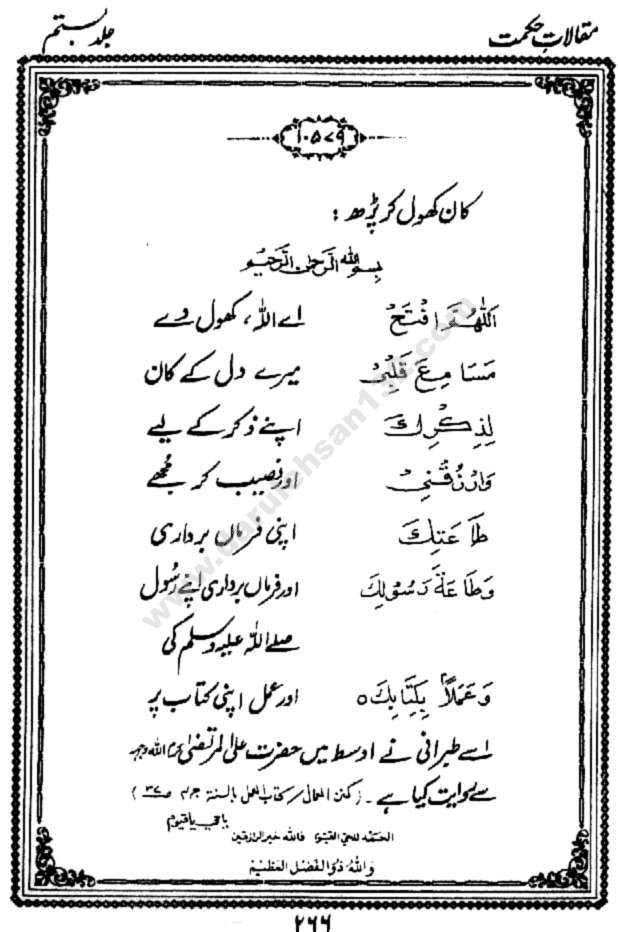 مقالات حکمت جلد بستم
۱۰۵۷۹
کان کھول کر پڑھ :
بسم الله الرحمن الرحيم
اَللّٰهُمَّ افْتَحْ اے اللہ، کھول دے
مَسَامِعَ قَلْبِيْ میرے دل کے کان
لِذِكْرِكَ اپنے ذکر کے لیے
وَارْزُقْنِيْ اور نصیب کر مجھے
طَاعَتِكَ اپنی فرماں برداری
وَطَاعَةَ رَسُوْلِكَ اور فرماں برداری اپنے رسُول
صلے اللہ علیہ وسلم کی
وَعَمَلاً بِكِتَابِكَ ٥ اور عمل اپنی کتاب پر
اسے طبرانی نے اوسط میں حضرت علی المرتضیٰ کرم اللہ وجہہ
سے روایت کیا ہے ۔ (کنز العمال / کتاب العمل بالسنة
یا حی یا قیوم
الحمد للحي القيوم فالله خير الرازقين
وَاللهُ ذُو الفَضْلِ العَظِيْمِ
۲۶۶
www.darulehsan133.com